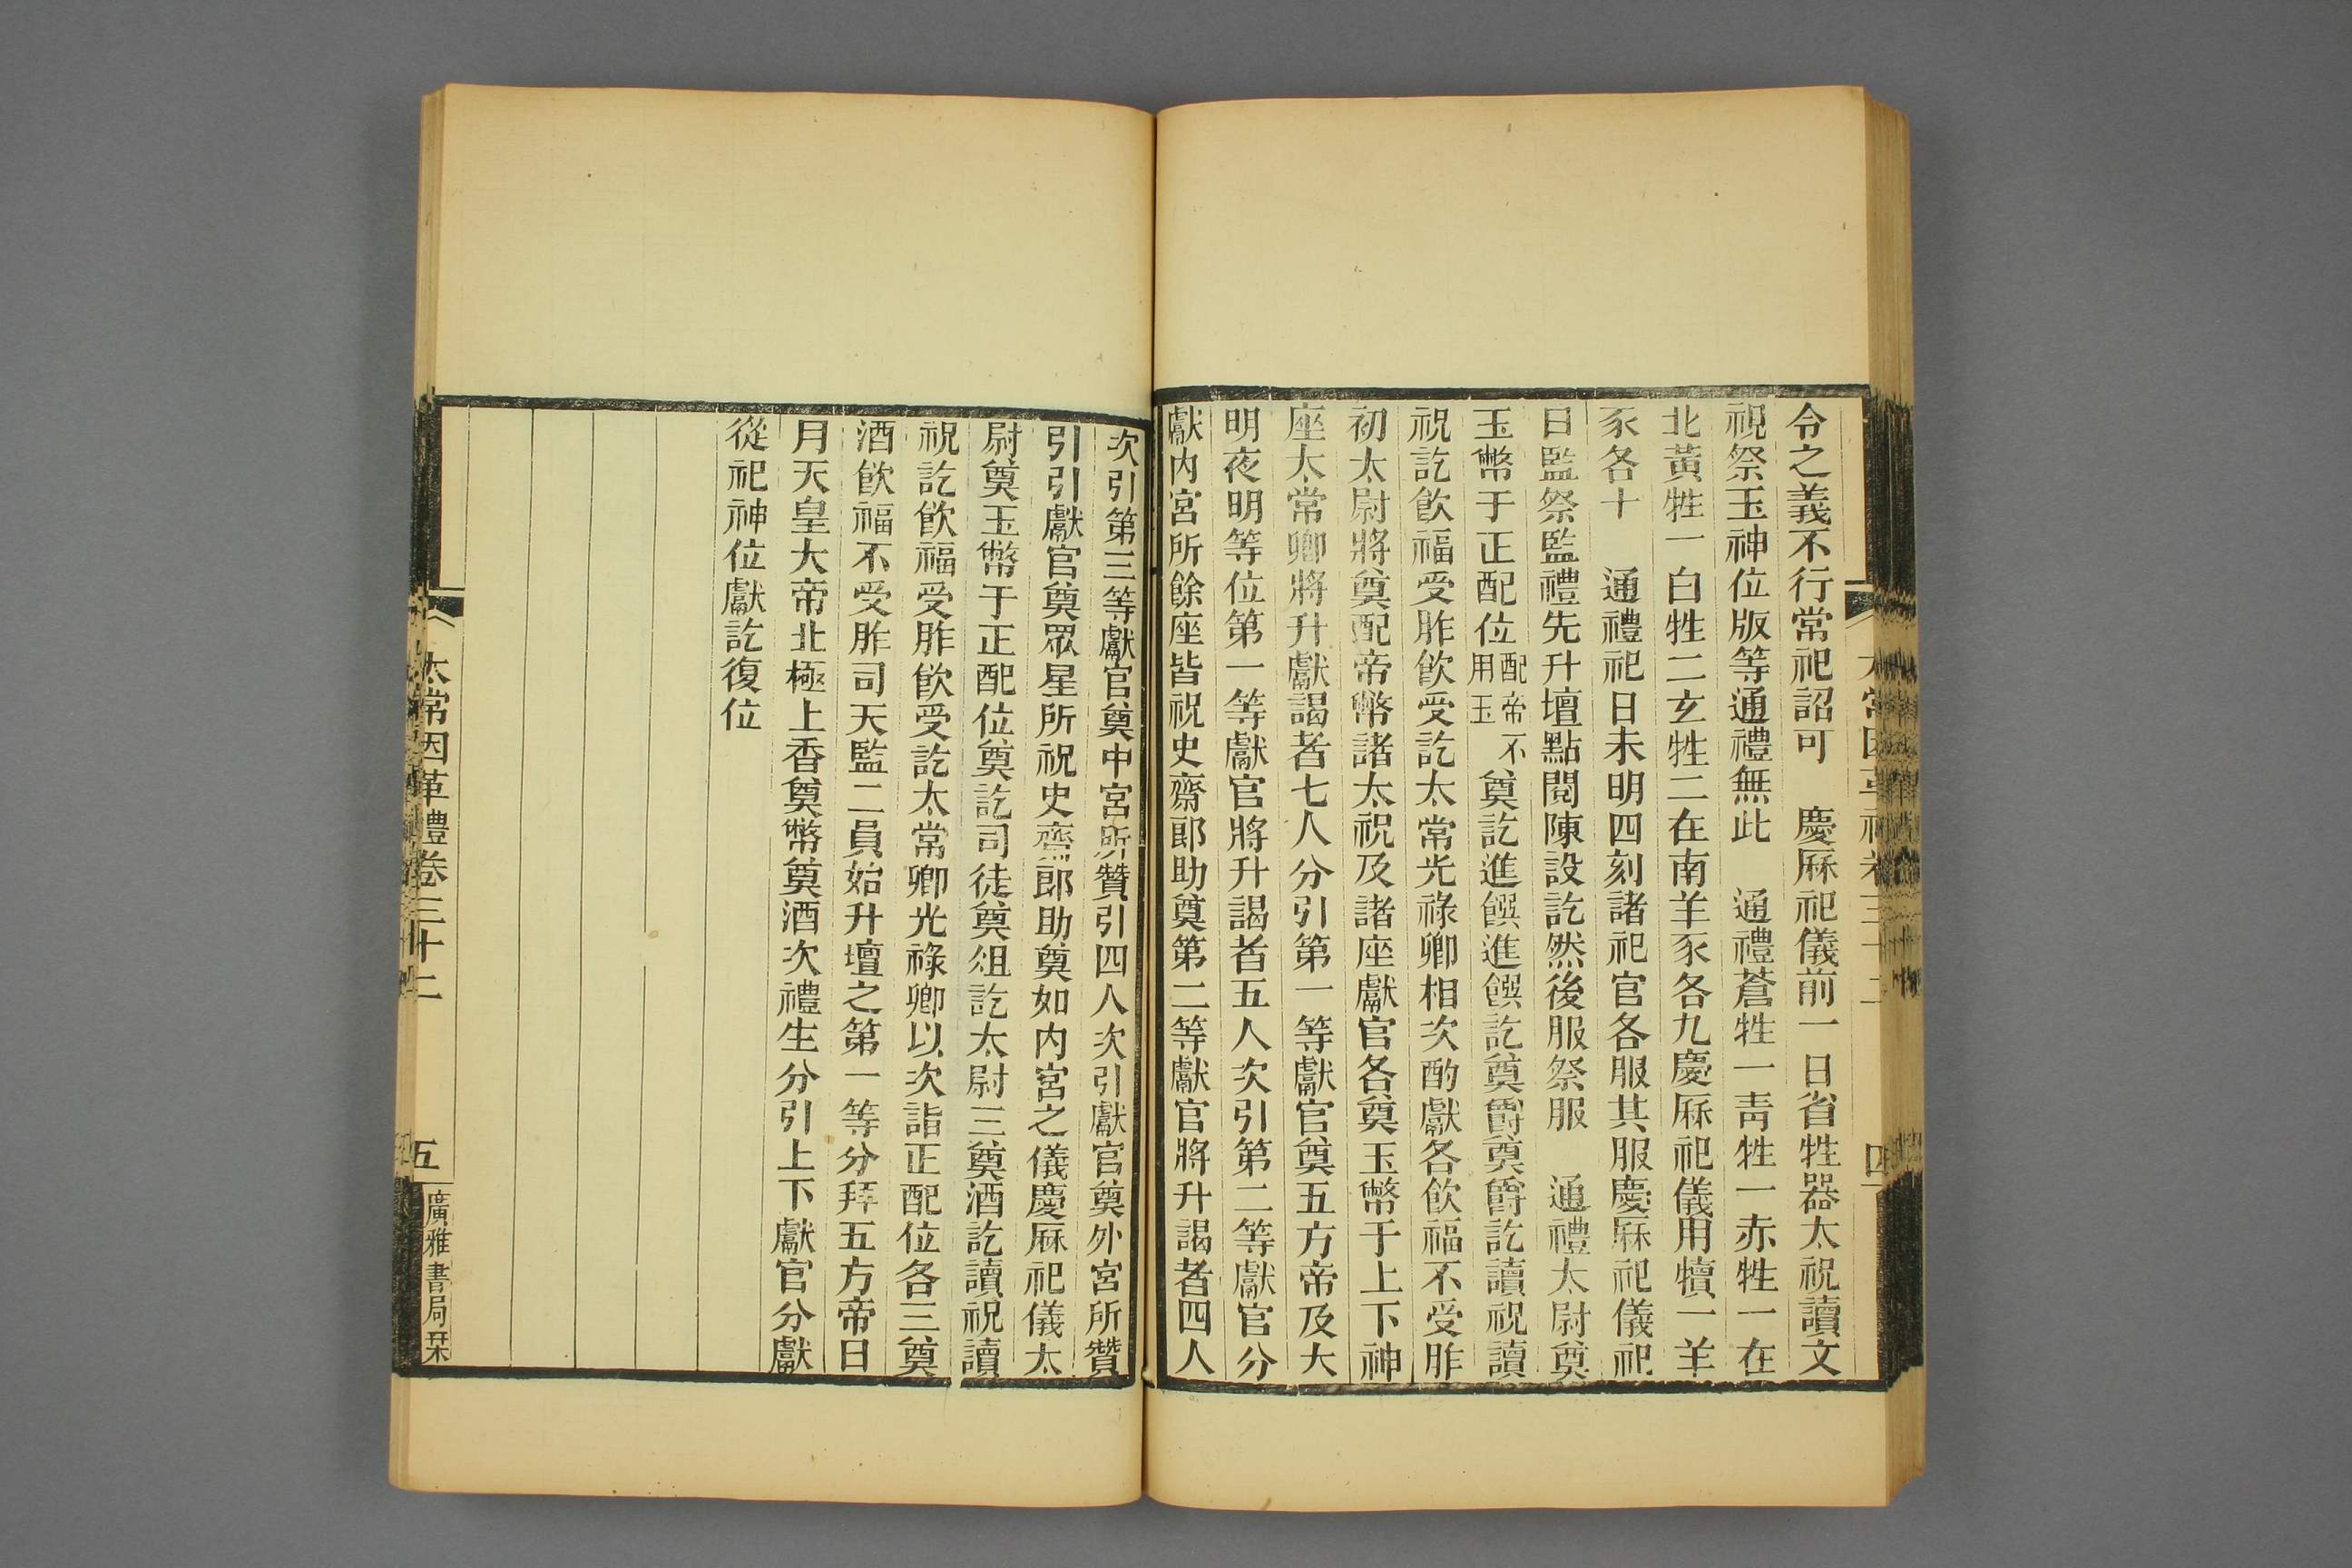 令之義不行常祀詔可　慶厤祀儀前一日省牲器太祝讀文
視祭玉神位版等通禮無此　通禮蒼牲一靑牲一赤牲一在
北黃牲一白牲二玄牲二在南羊豕各九慶厤祀儀用犢一羊
豕各十　通禮祀日未明四刻諸祀官各服其服慶厤祀儀祀
日監祭監禮先升壇點閱陳設訖然後服祭服　通禮太尉奠
玉幣于正配位配帝不用玉奠訖進饌進饌訖奠爵奠爵訖讀祝讀
祝訖飮福受胙飮受訖太常光祿卿相次酌獻各飮福不受胙
初太尉將奠配帝幣諸太祝及諸座獻官各奠玉幣于上下神
座太常卿將升獻謁者七人分引第一等獻官奠五方帝及大
明夜明等位第一等獻官將升謁者五人次引第二等獻官分
獻內宮所餘座皆祝史齋郎助奠第二等獻官將升謁者四人
次引第三等獻官奠中宮所贊引四人次引獻官奠外宮所贊
引引獻官奠眾星所祝史齋郎助奠如內宮之儀慶厤祀儀太
尉奠玉幣于正配位奠訖司徒奠俎訖太尉三奠酒訖讀祝讀
祝訖飮福受胙飮受訖太常卿光祿卿以次詣正配位各三奠
酒飮福不受胙司天監二員始升壇之第一等分拜五方帝日
月天皇大帝北極上香奠幣奠酒次禮生分引上下獻官分獻
從祀神位獻訖復位
太常因革禮卷三十二
五
廣雅書局栞